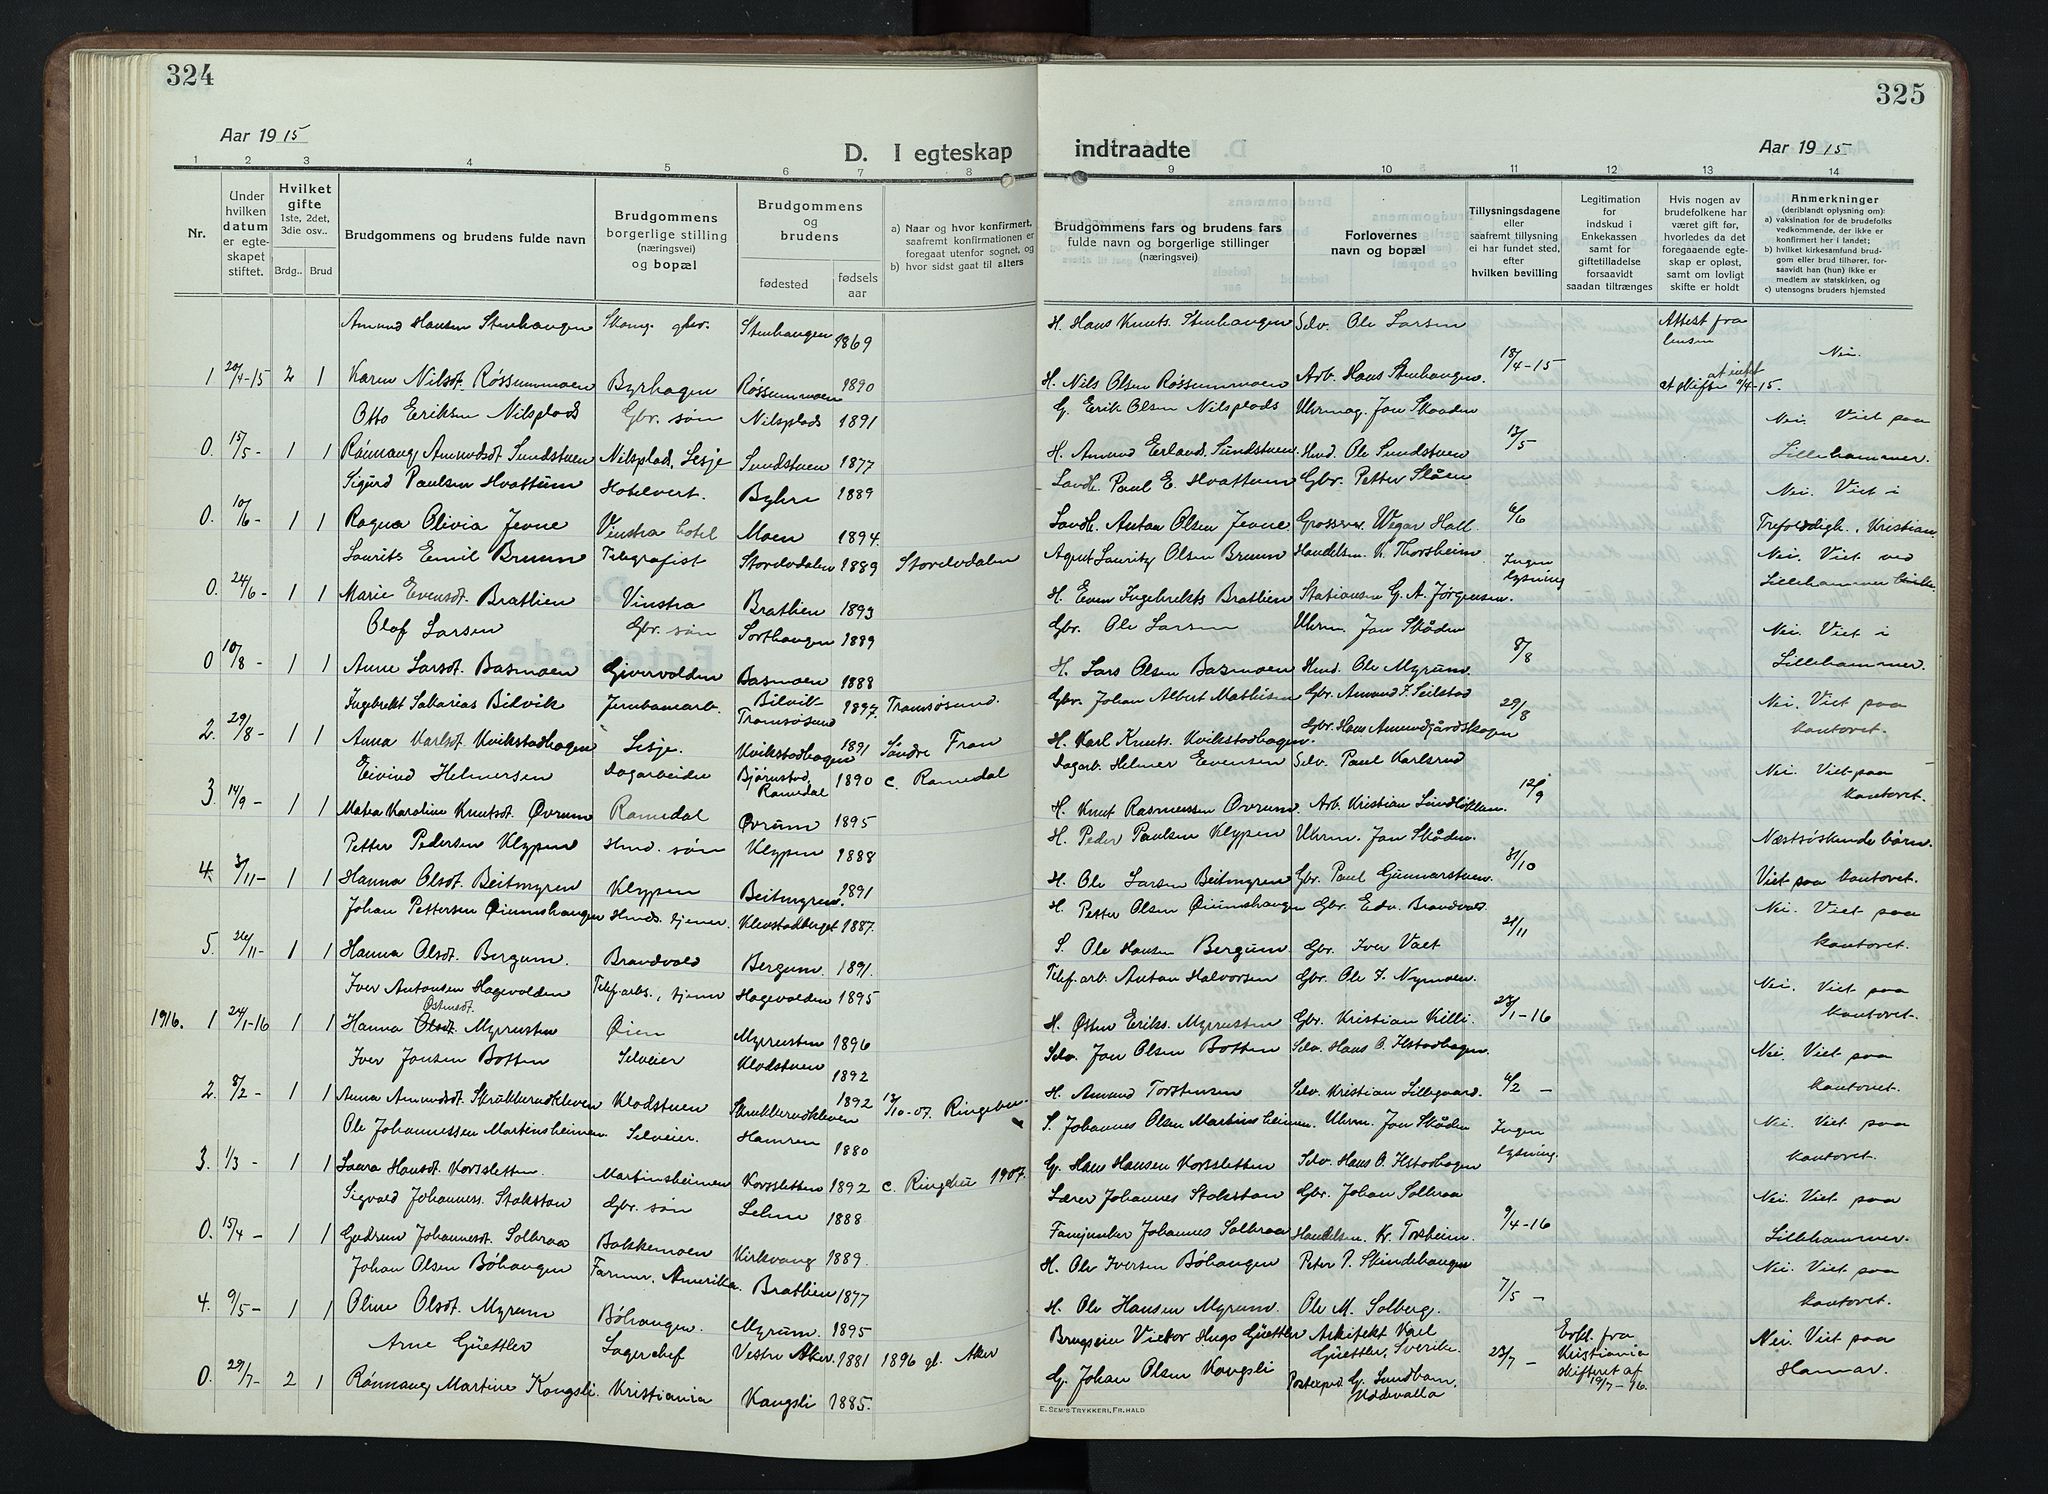 324
Aar 1915
D. I egteskap
1 2 3 4 5 6 7 8
Nr.
Under hvilken datum er egteskapet stiftet.
Hvilket gifte 1ste, 2det, 3die osv..
Brdg.. Brud
Brudgommens og brudens fulde navn
Brudgommens borgerlige stilling (næringsvei) og bopæl
Brudgommens og brudens
fødested
fødsels aar
a) Naar og hvor konfirmert, saafremt konfirmationen er foregaat utenfor sognet, og
b) hvor sidst gaat til alters
Amund Hansen Stenhaugen Skomg. gbr. Stenhaugen 1869
1 20/4-15 2 1 Karen Nilsdt. Røssummoen Byrhagen Røssummoen 1890
Otto Eriksen Nilsplads Gbr. søn Nilsplads 1891
0. 15/5 - 1 1 Rønnaug Amundsdt Sundstuen Nilsplads, Lesje Sundstuen 1877
Sigurd Paulsen Hvattum Hotelvert. Byhre 1889
0. 10/6 - 1 1 Ragna Olivia Jevne Vinstra hotel Moen 1894.
Laurits Emil Bruun Telegrafist Storelvdalen 1889 Storelvdalen
0. 24/6 - 1 1 Marie Evensdt. Bratlien Vinstra Bratlien 1893
Olaf Larsen Gbr. søn Sorthaugen 1889
0 10/8 - 1 1 Anne Larsdt. Basmoen Givervolden Basmoen 1888
Ingebrekt Sakarias Bilvik Jernbanearb. Bilvik Tromsøsund 1897. Tromsøsund.
2. 29/8 - 1 1 Anna Karlsdt. Kvikstadhagen Lesje. Kvikstadhagen 1891 Søndre Fron
Eivind Helmersen Dagarbeider Bjørnstad, Romedal 1890 c. Romedal
3. 14/9 - 1 1 Matea Karoline Knutsdt. Øvrum Romedal Øvrum 1895
Petter Pedersen Klypen Hmd. søn Klypen 1888
4. 3/11 - 1 1 Hanna Olsdt. Beitmyren Klypen Beitmyren. 1891
Johan Pettersen Øiumshaugen Hmds. tjener Klevstadberget 1887.
5. 26/11 - 1 1 Hanna Olsdt. Bergum. Brandvold Bergum. 1891.
Iver Antonsen Hagevolden Telef.arb., tjener Hagevolden 1895
1916. 1 24/1-16 1 1 Hanna Olsdt Østensdt. Myrrusten Øien Myrrusten 1896
Iver Jonsen Botten Selveier Klodstuen 1892
2. 8/2 - 1 1 Anna Amundsdt. Skrukkerudkleven Klodstuen Skrukkerudkleven 1892 13/10-07. Ringebu.
Ole Johannessen Martinsheimen Selveier. Hamren 1880
3. 1/3 - 1 1 Laura Hansdt. Korssletten. Martinsheimen Korssletten 1892 c. Ringebu 1907.
Sigvald Johanness. Stokstan Gbr. søn Lelm 1888
0. 15/4 - 1 1 Gudrun Johannesdt. Solbraa Bakkemoen Kirkvang 1889.
Johan Olsen Bøhaugen Farmer, Amerika. Bratlien 1877
4. 9/5 - 1 1 Oline Olsdt. Myrum Bøhaugen. Myrum. 1895
Arne Güettler Lagerchef Vestre Aker. 1881 1896 gl. Aker
0. 29/7 - 2 1 Rønnaug Martine Kongsli. Kristiania Kongsli 1885.
325
indtraadte
Aar 1915
9 10 11 12 13 14
Brudgommens fars og brudens fars fulde navn og borgerlige stillinger (næringsvei)
Forlovernes navn og bopæl
Tillysningsdagene eller saafremt tillysning ei har fundet sted, efter hvilken bevilling
Legitimation for indskud i Enkekassen samt for giftetilladelse forsaavidt saadan tiltrænges
Hvis nogen av brudefolkene har været gift før, hvorledes da det foregaaende egteskap er opløst, samt om lovligt skifte er holdt
Anmerkninger (deriblandt oplysning om):
a) vaksination for de brudefolks vedkommende, der ikke er konfirmert her i landet;
b) hvilket kirkesamfund brudgom eller brud tilhører, forsaavidt han (hun) ikke er medlem av statskirken, og
c) utensogns bruders hjemsted
H. Hans Knuts. Stenhaugen Selv. Ole Larsen Attest fra
H. Nils Olsen Røssummoen Arb. Hans Stenhaugen. 18/4-15 Nei.
G. Erik Olsen Nilsplads Uhrmag. Jon Skaaden Nei. Viet paa
H. Amund Erlands. Sundstuen Hmd. Ole Sundstuen 13/5 Lillehammer.
Landh. Paul E. Hvattum Gbr. Petter Slåen Nei. Viet i
Landh. Anton Olsen Jevne Grosserer Wegar Hall. 6/6 Trefoldigh., Kristian.
Agent Lauritz Olsen Bruun Handelsm. K. Thorsheim Ingen Nei. Viet ved
H. Even Ingebrekts Bratlien Stationsm G. A. Jørgensen. lysning Lillehammer kirke
Gbr. Ole Larsen Uhrm. Jon Skåden Nei. Viet i
H. Lars Olsen Basmoen Hmd. Ole Myrum. 8/8 Lillehammer.
Gbr. Johan Albert Mathisen Gbr. Amund I. Seilstad Nei. Viet paa
H. Karl Knuts. Kvikstadhagen. Gbr. Hans Amundgårdskogen 29/8 kontoret.
Dagarb. Helmer Evensen Selv. Paul Karlsrud Nei. Viet paa
H. Knut Rasmussen Øvrum. Arb. Kristian Lundløkken. 12/9 kontoret.
H. Peder Paulsen Klypen Uhrm. Jon Skåden. Næstsøskendebørn.
H. Ole Larsen Beitmyren Gbr. Paul Gunnarstuen. 31/10 Viet paa kontoret.
H. Petter Olsen Øiumshaugen Gbr. Edv. Brandvold. Nei. Viet paa
S. Ole Hansen Bergum. Gbr. Iver Valt 21/11 kontoret.
Telef.arb. Anton Halvorsen Gbr. Ole I. Nymoen. Nei. Viet paa
H. Østen Eriks. Myrrusten Gbr. Kristian Killi. 23/1-16 kontoret.
Selv. Jon Olsen Botten Selv. Hans O. Ilstadhagen. Nei. Viet paa
H. Amund Torstensen Selv. Kristian Lillegaard. 6/2 - kontoret.
S. Johannes Olsen Martinsheimen. Uhrm. Jon Skåden Ingen Nei. Viet paa
G. Hans Hansen Korssletten Selv. Hans O. Ilstadhagen lysning. kontoret.
Lærer Johannes Stokstan Gbr. Johan Solbraa Nei. Viet paa
Fanejunker Johannes Solbraa Handelsm. Kr. Torsheim. 9/4-16 Lillehammer.
H. Ole Iversen Bøhaugen Peter P. Skindehaugen Nei. Viet paa
H. Ole Hansen Myrum. Ole M. Solberg. 7/5 - kontoret.
Brugseier Victor Hugo Güettler Arkitekt Karl Güettler, Sverike. Erkl. fra Kristiania skifteret af 19/7-16. Nei. Viet paa
G. Johan Olsen Kongsli Postexped. G. Sundbom, Uddevalla 23/7 - Hamar.
E. SEM'S TRYKKERI, FR.HALD